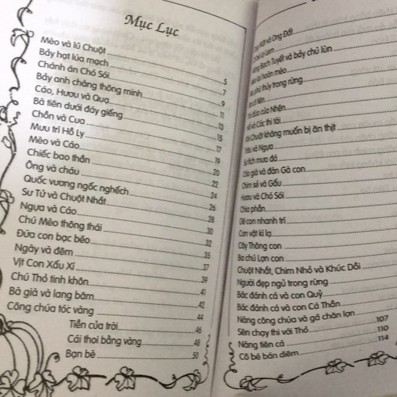 Mục Lục
Mèo và lũ Chuột
Bảy hạt lúa mạch 5
Chánh án Chó Sói 7
Bảy anh chàng thông minh 9
Cáo, Hươu và Quạ 11
Bà tiên dưới đáy giếng 13
Chồn và Cua 15
Mưu trí Hồ Ly 17
Mèo và Cáo 19
Chiếc bao thần 20
Ông và cháu 22
Quốc vương ngốc nghếch 24
Sư Tử và Chuột Nhắt 26
Ngựa và Cáo 28
Chú Mèo thông thái 30
Đứa con bạc bẽo 32
Ngày và đêm 35
Vịt Con Xấu Xí 37
Chú Thỏ tinh khôn 39
Bà già và lang băm 42
Công chúa tóc vàng 44
Tiền của trời 46
Cái thoi bằng vàng 48
Bạn bè 50
và Ong Đất
Bạch Tuyết và bảy chú lùn
trong rừng
của Nhện
và Các thi tài
Chuột không muốn bị ăn thịt
và Ngựa
mưa đá
Cáo già và đàn Gà con
Chim sẻ và Gấu
Hươu và Chó Sói
Chia phần
Dê con nhanh trí
Con vật kì lạ
Cây Thông con
Ba chú Lợn con
Chuột Nhắt, Chim Nhỏ và Khúc Dồi
Người đẹp ngủ trong rừng
Bác đánh cá và con Quỷ
Bác đánh cá và con Cá Thần
Nàng công chúa và gã chăn lợn
Sên chạy thi với Thỏ 107
Nàng tiên cá 110
Cô bé bán diêm 114